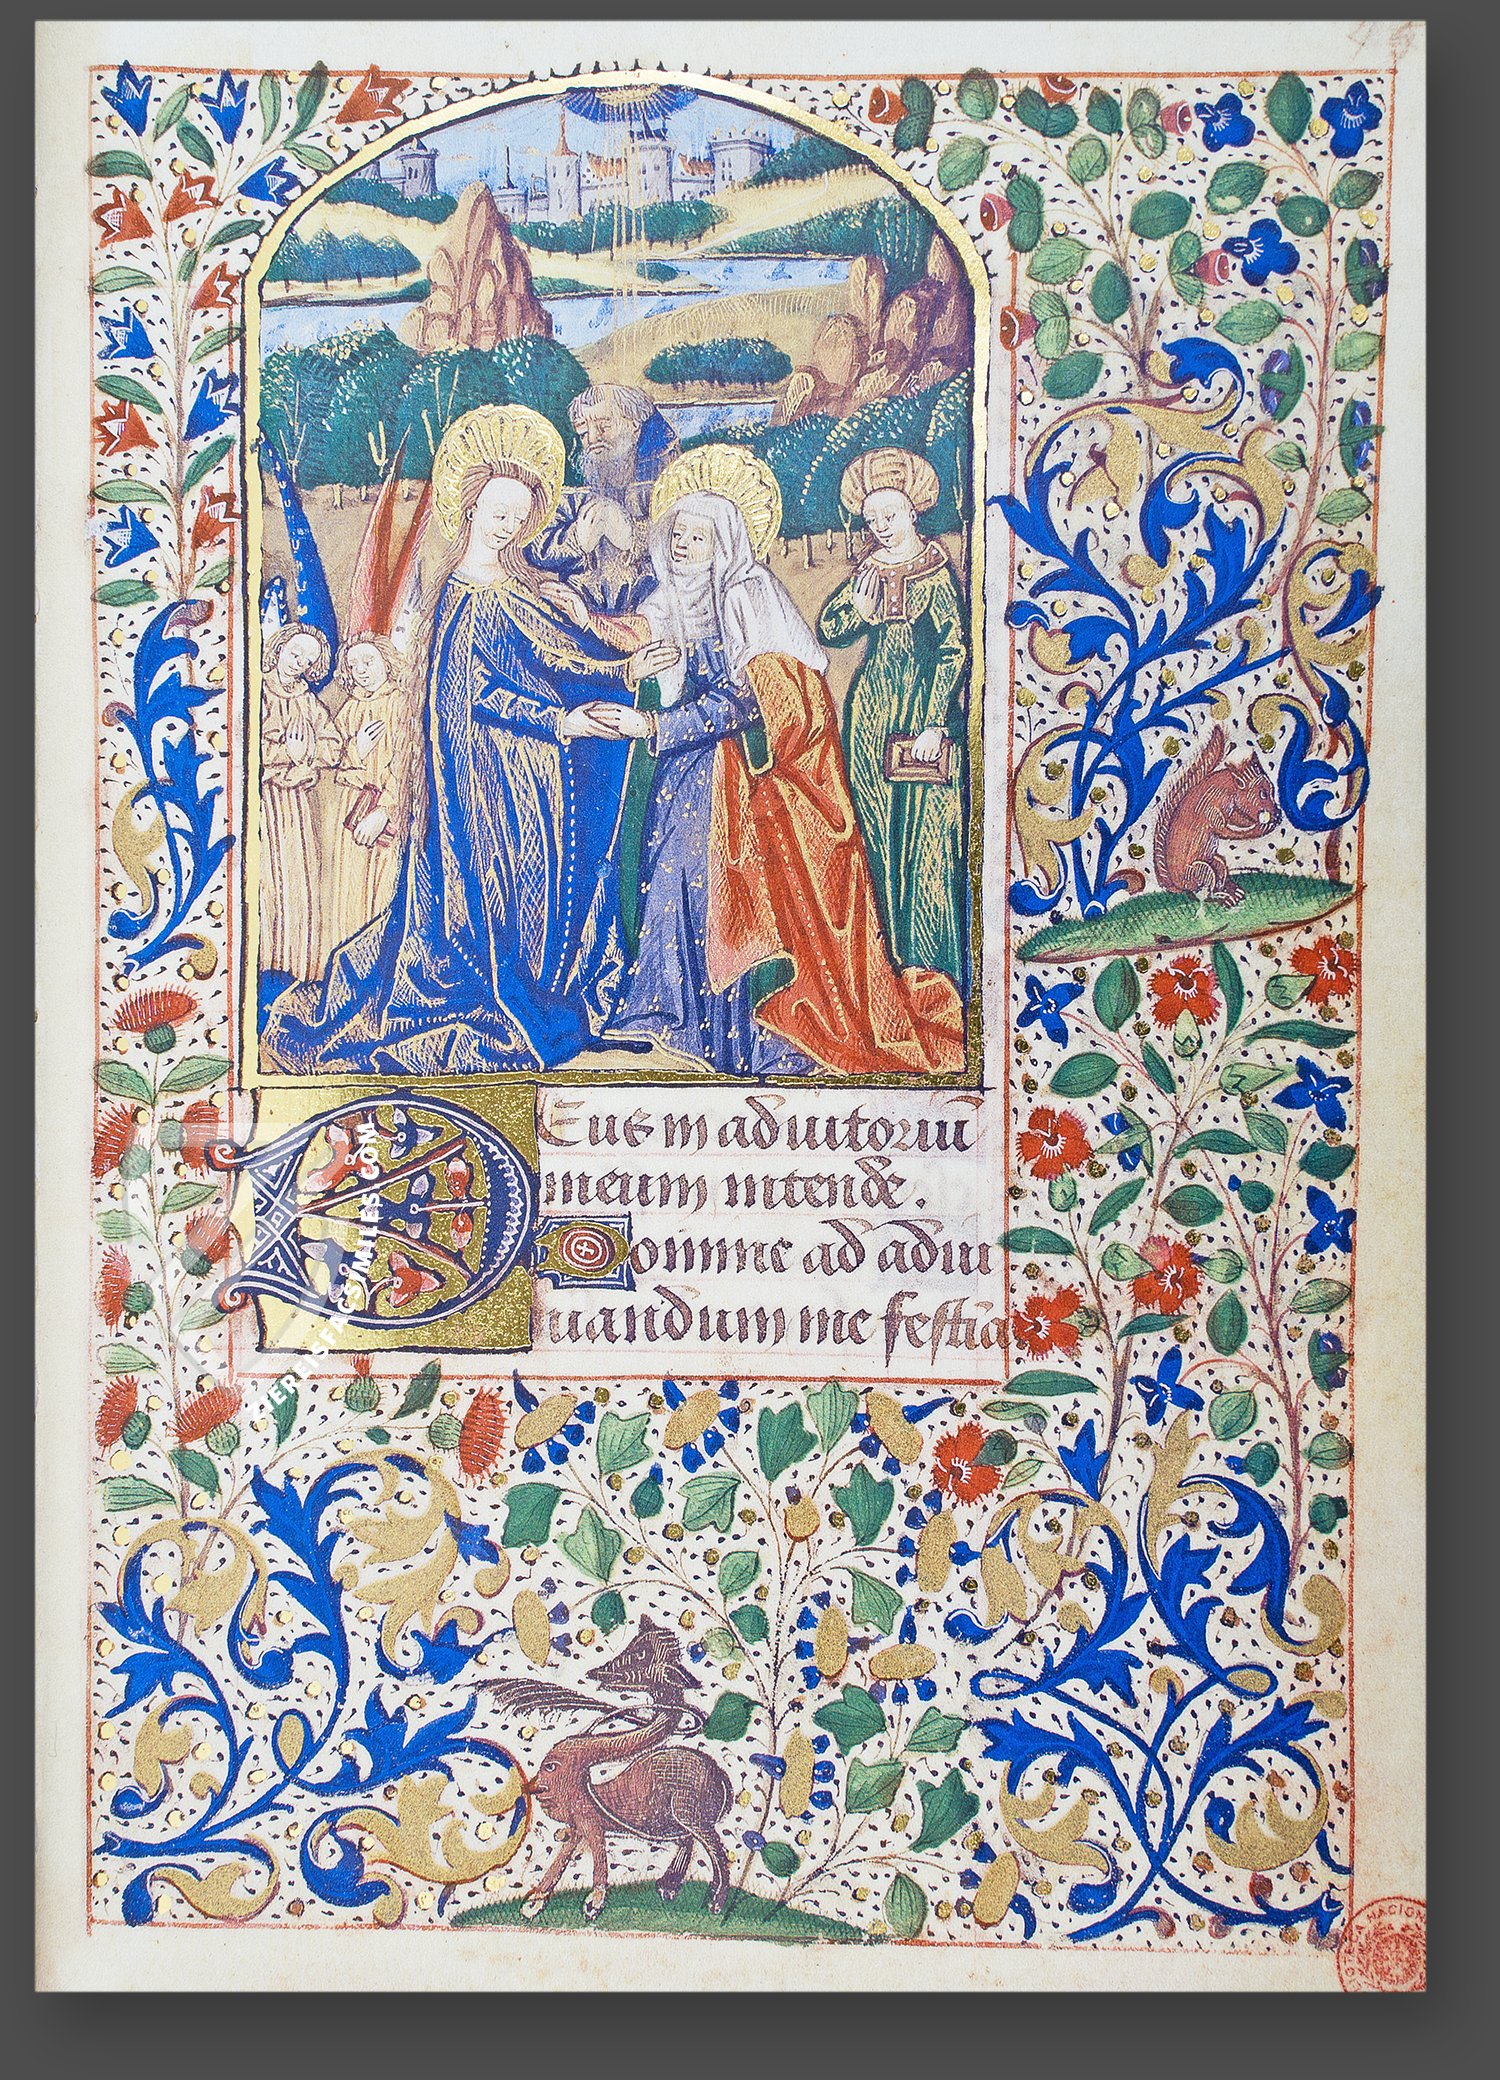 Deus in adiutoriū
meum intende.
Domine ad adiu
uandum me festina
ZIEREISFACSIMILES.COM
NACION